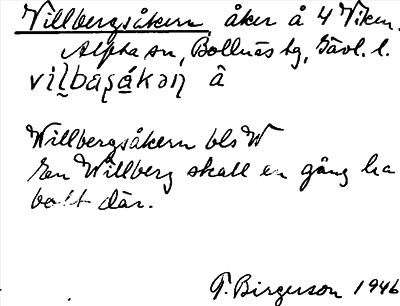 Villbergsåkern, åker å 4 Viken.
Alpha sn, Bollnäs tg, Gävl. l.
vil̬baʂákəɳ â
Willbergsåkern bls W
En Willberg skall en gång ha
bott där.
F. Birgerson 1946